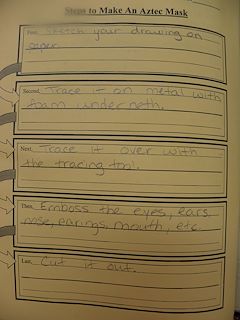 Steps to Make An Aztec Mask
First, Sketch your drawing on
paper.
Second, Trace it on metal with
foam underneth.
Next, Trace it over with
the tracing tool.
Then, Emboss the eyes, ears
nose, earings, mouth, etc.
Last, Cut it out.